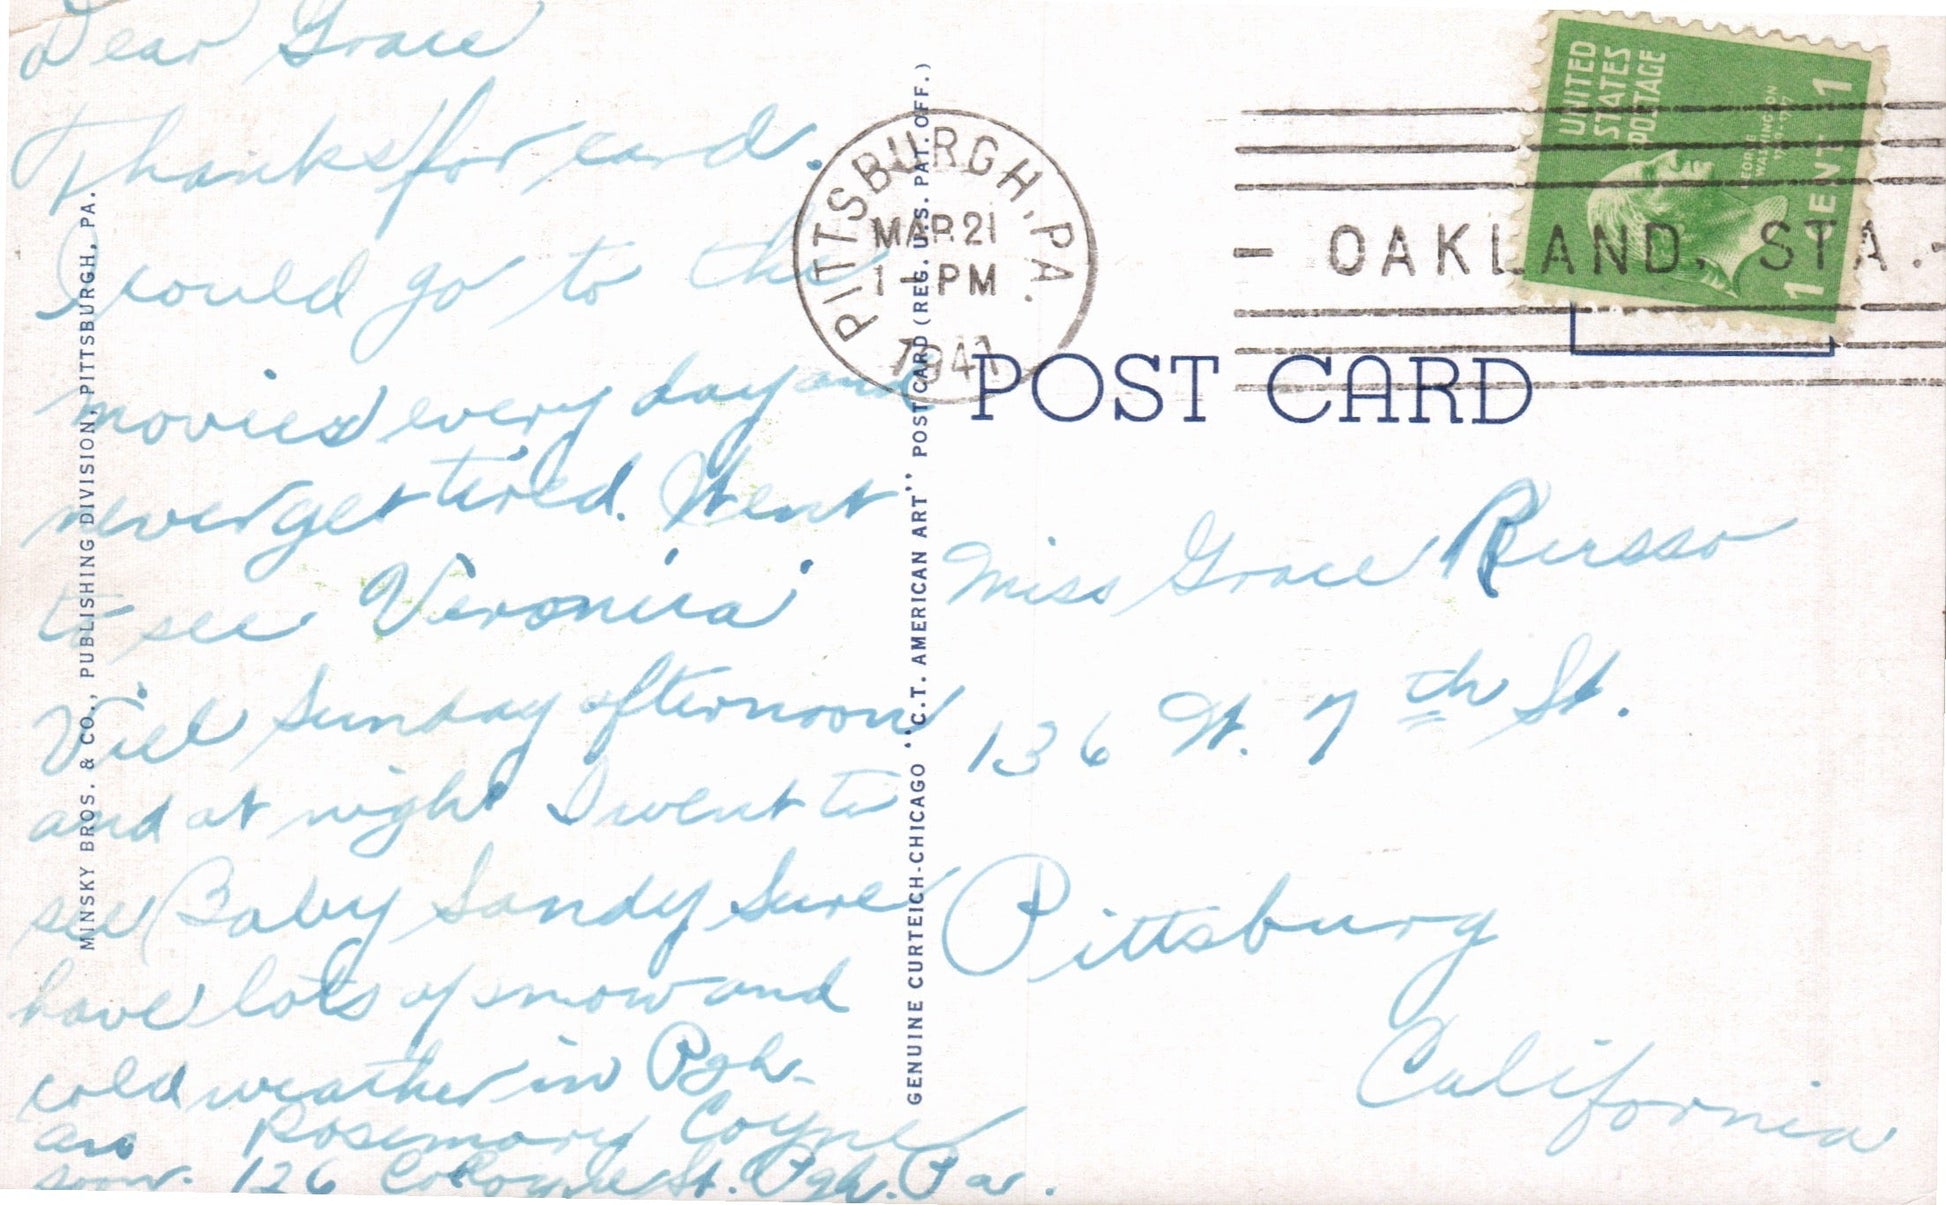 Dear Grace
Thanks for card.
I could go to the
movies every day and
never get tired. Went
to see Veronica
Viel Sunday afternoon
and at night I went to
see Baby Sandy Sure
have lots of snow and
cold weather in Pgh.
ans Rosemary Coyne
soon. 126 Cologne St. Pgh. Pa.
MINSKY BROS. & CO., PUBLISHING DIVISION, PITTSBURGH, PA.
GENUINE CURTEICH-CHICAGO "C.T. AMERICAN ART" POST CARD (REG. U.S. PAT. OFF.)
PITTSBURGH, PA.
MAR 21
1 - PM
1941
- OAKLAND, STA. -
UNITED
STATES
POSTAGE
GEORGE
WASHINGTON
1 CENT 1
POST CARD
Miss Grace Russo
136 W. 7th St.
Pittsburg
California